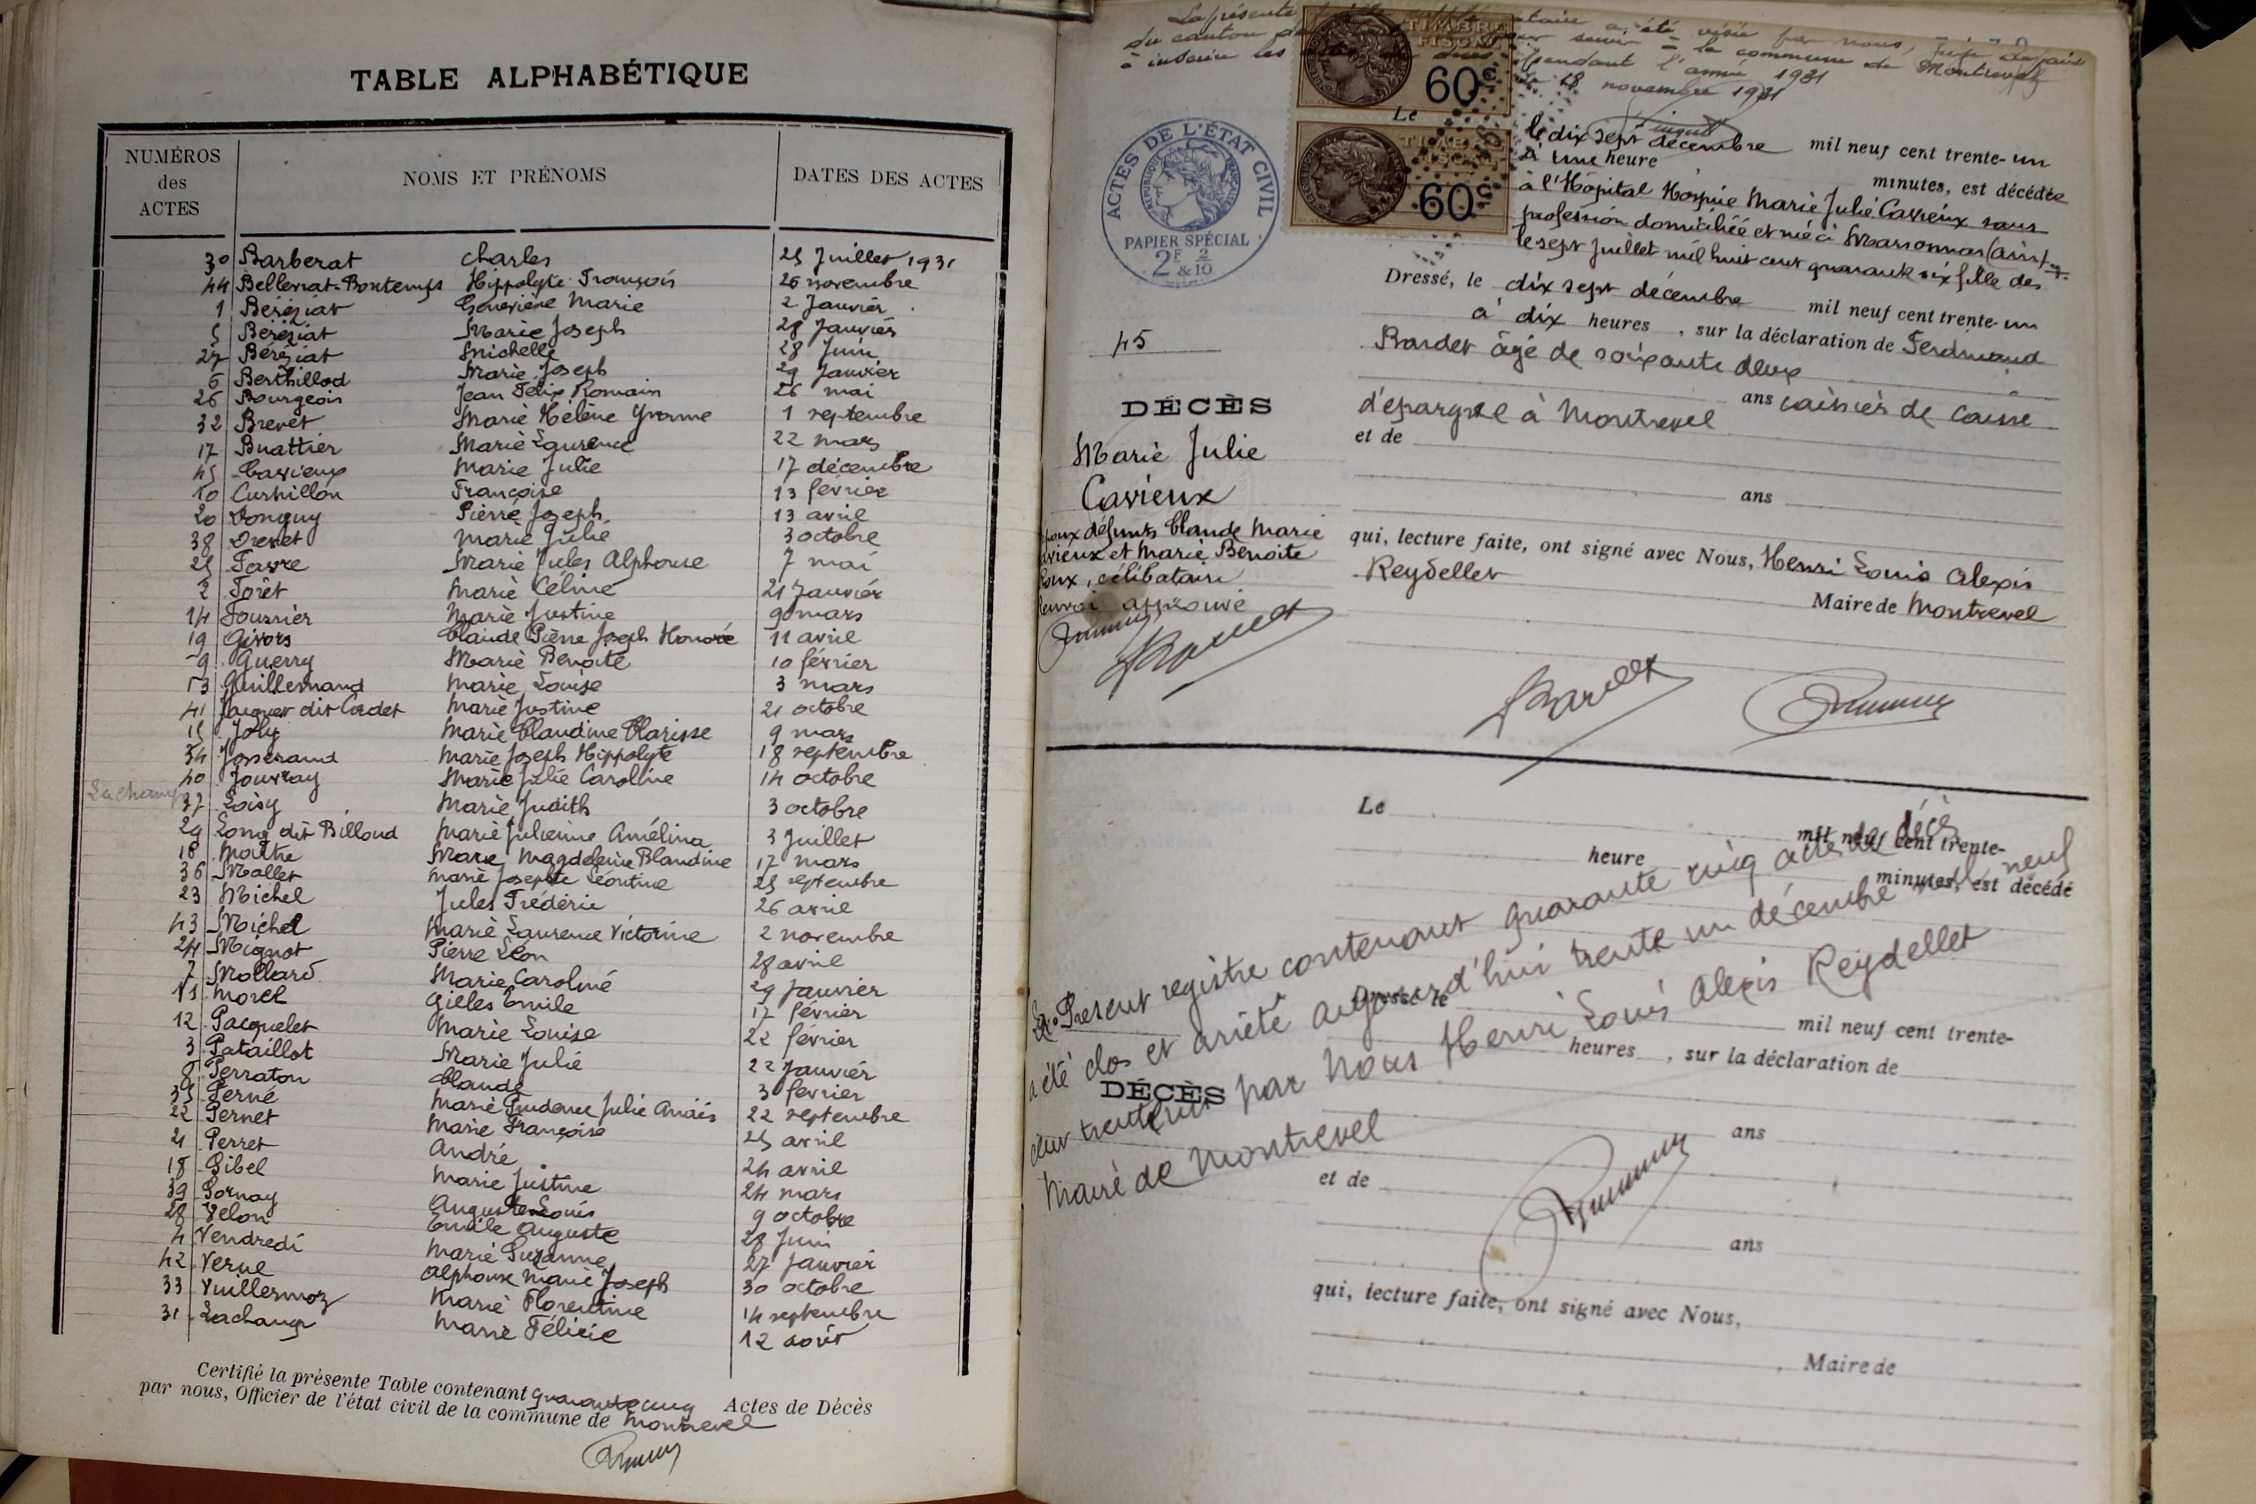 TABLE ALPHABÉTIQUE
NUMÉROS des ACTES
NOMS ET PRÉNOMS
DATES DES ACTES
30 Barberat Charles 25 Juillet 1931
44 Bellevrat-Bontemps Hippolyte François 26 novembre
1 Béréziat Geneviève Marie 2 Janvier
5 Béréziat Marie Joseph 28 Janvier
27 Béréziat Michelle 28 Juin
6 Berthillod Marie Joseph 29 Janvier
26 Bourgeois Jean Félix Romain 26 mai
32 Brevet Marie Hélène Yvonne 1 septembre
17 Buattier Marie Laurence 22 mars
45 Cavieux Marie Julie 17 décembre
10 Curnillon Françoise 13 février
20 Donguy Pierre Joseph 13 avril
38 Drevet Marie Julie 3 octobre
25 Favre Marie Jules Alphonse 7 mai
2 Forêt Marie Céline 21 Janvier
14 Fournier Marie Justine 9 mars
19 Givors Claude Pierre Joseph Honoré 11 avril
9 Guerry Marie Benoite 10 février
13 Guillermand Marie Louise 3 mars
41 Jacquet dit Cadet Marie Justine 21 octobre
15 Joly Marie Claudine Clarisse 9 mars
34 Josserand Marie Joseph Hippolyte 18 septembre
40 Jouvray Marie Julie Caroline 14 octobre
Lachamp
37 Loisy Marie Judith 3 octobre
29 Long dit Billoud Marie Julienne Amélina 3 Juillet
16 Maître Marie Magdeleine Blandine 17 mars
36 Mallet Marie Josephte Léontine 25 septembre
23 Michel Jules Frédéric 26 avril
43 Michel Marie Laurence Victorine 2 novembre
24 Mignot Pierre Léon 28 avril
7 Mollard Marie Caroline 29 Janvier
11 Morel Gilles Emile 17 février
12 Pacquelet Marie Louise 22 février
3 Pataillot Marie Julie 22 Janvier
8 Perraton Claude 3 février
35 Perné Marie Prudence Julie Anaïs 22 septembre
22 Pernet Marie Françoise 25 avril
21 Perret André 24 avril
18 Sibel Marie Justine 24 mars
39 Sornay Auguste Louis 9 octobre
28 Velon Emile Auguste 28 Juin
4 Vendredi Marie Suzanne 27 Janvier
42 Verne Alphonse Marie Joseph 30 octobre
33 Vuillermoz Marie Florentine 14 septembre
31 Lachamp Marie Félicie 12 août
Certifié la présente Table contenant quarante cinq Actes de Décès
par nous, Officier de l'état civil de la commune de Montrevel
La présente a été visée par nous, Juge de paix
du canton de pour servir à la commune de Montrevel
à inscrire les pendant l'année 1931
18 novembre 1931
TIMBRE FISCAL 60c
TIMBRE FISCAL 60c
ACTES DE L'ÉTAT CIVIL
RÉPUBLIQUE FRANÇAISE
PAPIER SPÉCIAL
2F & 2/10
Le
le dix sept décembre mil neuf cent trente-un
à une heure minutes, est décédée
à l'Hôpital Hospice Marie Julie Cavieux sans
profession domiciliée et née à Marsonnas (Ain)
le sept Juillet mil huit cent quarante six fille des
Dressé, le dix sept décembre mil neuf cent trente-un
à dix heures , sur la déclaration de Ferdinand
Bardet âgé de soixante deux
ans caissier de Caisse
d'épargne à Montrevel
et de
ans
qui, lecture faite, ont signé avec Nous, Henri Louis Alexis
Reydellet
Maire de Montrevel
45
DÉCÈS
Marie Julie
Cavieux
époux défunts Claude Marie
Cavieux et Marie Benoite
Roux, célibataire
Renvoi approuvé
Bardet
Bardet
Le
mil neuf cent trente-
heure minutes, est décédé
Dressé le
mil neuf cent trente-
heures , sur la déclaration de
DÉCÈS
ans
et de
ans
qui, lecture faite, ont signé avec Nous,
, Maire de
Le Présent registre contenant quarante cinq actes de décès
a été clos et arrêté aujourd'hui trente un décembre mil neuf
cent trente un par nous Henri Louis Alexis Reydellet
Maire de Montrevel